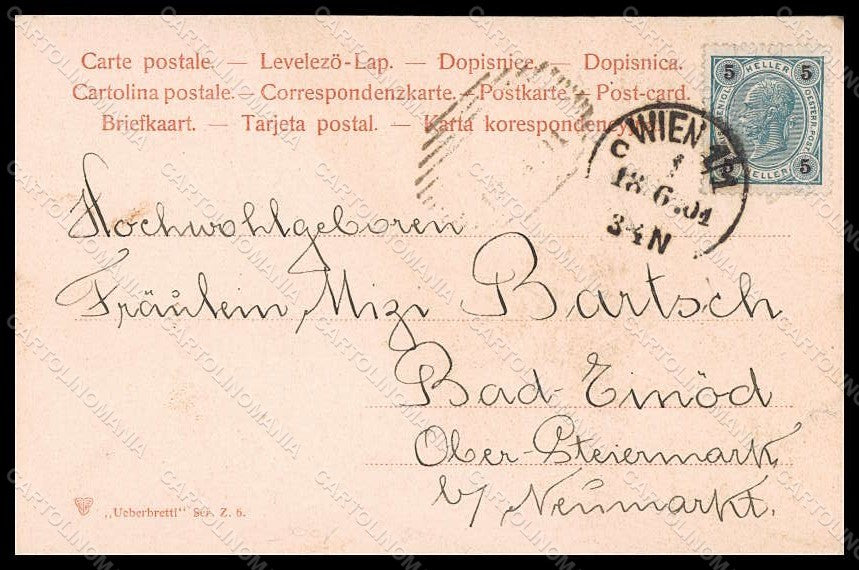 Carte postale. — Levelező-Lap. — Dopisnice. — Dopisnica.
Cartolina postale. — Correspondenzkarte. — Postkarte — Post-card.
Briefkaart. — Tarjeta postal. — Karta korespondencyjna.
5 HELLER 5
OESTERR. POST
5 HELLER 5
WIEN
C 1
18.6.01
3-4 N
Hochwohlgeboren
Fräulein Mizi Bartsch
Bad Einöd
Ober-Steiermark
b/ Neumarkt.
„Ueberbrettl" Ser. Z. 6.
CARTOLINOMANIA